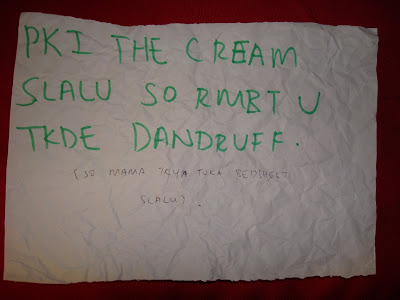 PKI THE CREAM
SLALU SO RMBT U
TKDE DANDRUFF.
(SO MAMA XYA TUKA BEDSHEET
SLALU).